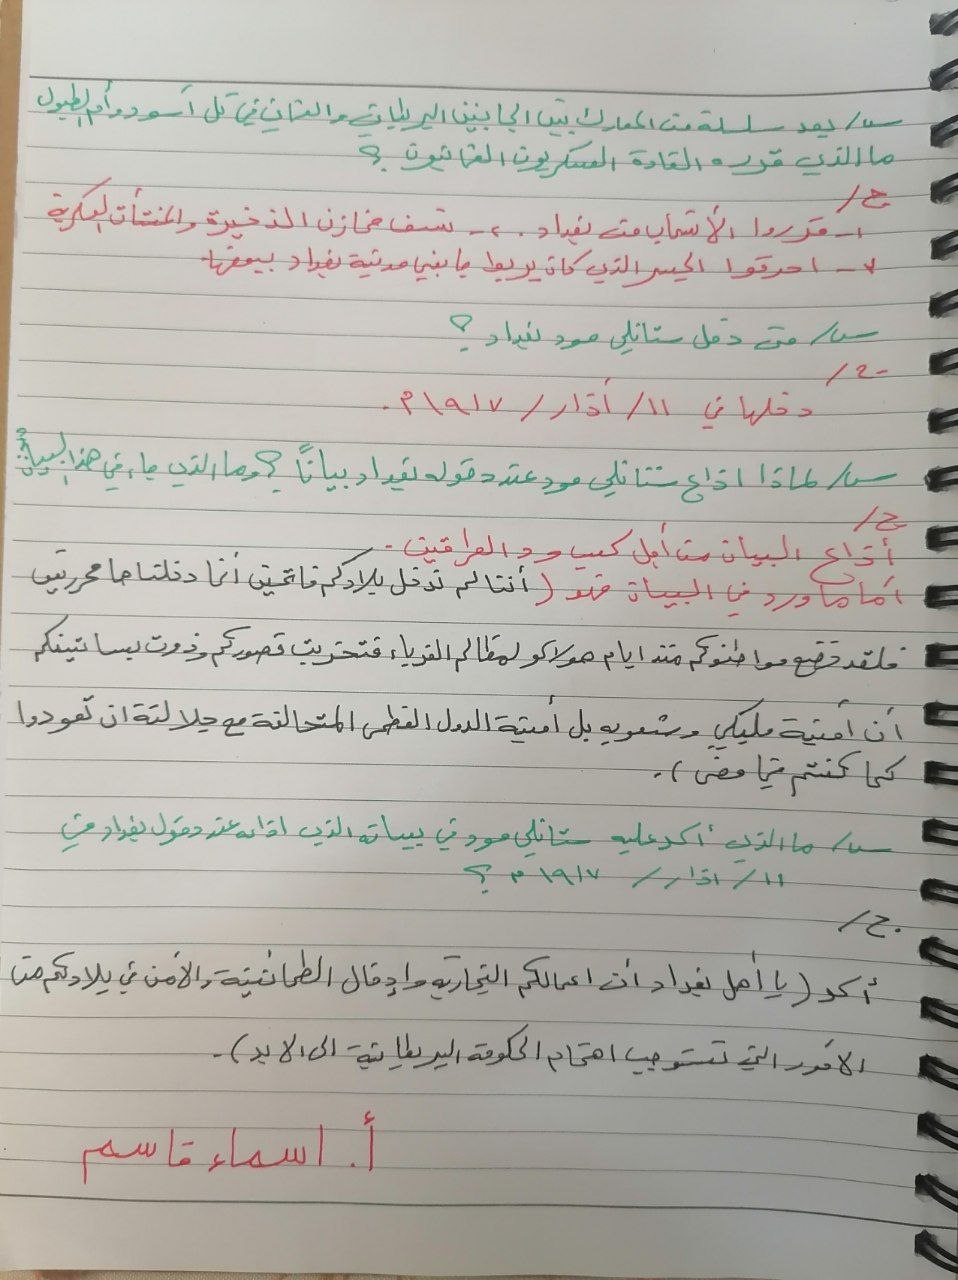 س/ بعد سلسلة من المعارك بين الجانبين البريطاني والعثماني في تل أسود وأم الطبول
ما الذي قرره القادة العسكريون العثمانيون ؟
ج/
١- قرروا الأنسحاب من بغداد . ٢- نسف مخازن الذخيرة والمنشأت العسكرية
٣- احرقوا الجسر الذي كان يربط جانبي مدينة بغداد ببعضها.
س/ متى دخل ستانلي مود بغداد ؟
ج/
دخلها في ١١/ أذار / ١٩١٧م .
س/ لماذا اذاع ستانلي مود عند دخوله بغداد بياناً ؟ وما الذي جاء في هذا البيان؟
ج/
أذاع البيان من أجل كسب ود العراقيين .
أما ما ورد في البيان فهو ( أننا لم ندخل بلادكم فاتحين أنما دخلناها محررين
فلقد خضع مواطنوكم منذ ايام هولاكو لمظالم الغرباء فتخربت قصوركم وذوت بساتينكم
أن أمنية مليكي وشعوبه بل أمنية الدول العظمى المتحالفة مع جلالته ان تعودوا
كما كنتم فيما مضى ).
س/ ما الذي أكد عليه ستانلي مود في بيانه الذي اذاعه عند دخول بغداد في
١١/ اذار / ١٩١٧ م ؟
ج/
أكد ( يا أهل بغداد أن اعمالكم التجارية وإدخال الطمأنينة والأمن في بلادكم من
الأمور التي تستوجب اهتمام الحكومة البريطانية الى الابد ).
أ. اسماء قاسم